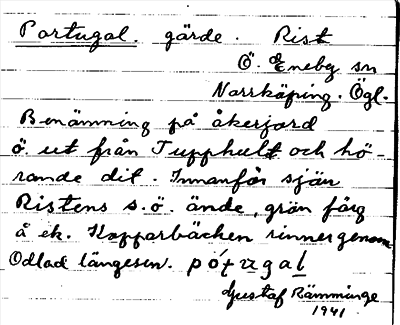 Portugal. gärde. Rist
Ö. Eneby sn
Norrköping. Ögl.
Benämning på åkerjord
ö. ut från Tupphult och hö-
rande dit. Innanför sjön
Ristens s.ö. ände, grön färg
å ek. Kopparbäcken rinner genom
Odlad längesen. pórtugal
Gustaf Rämminge
1941